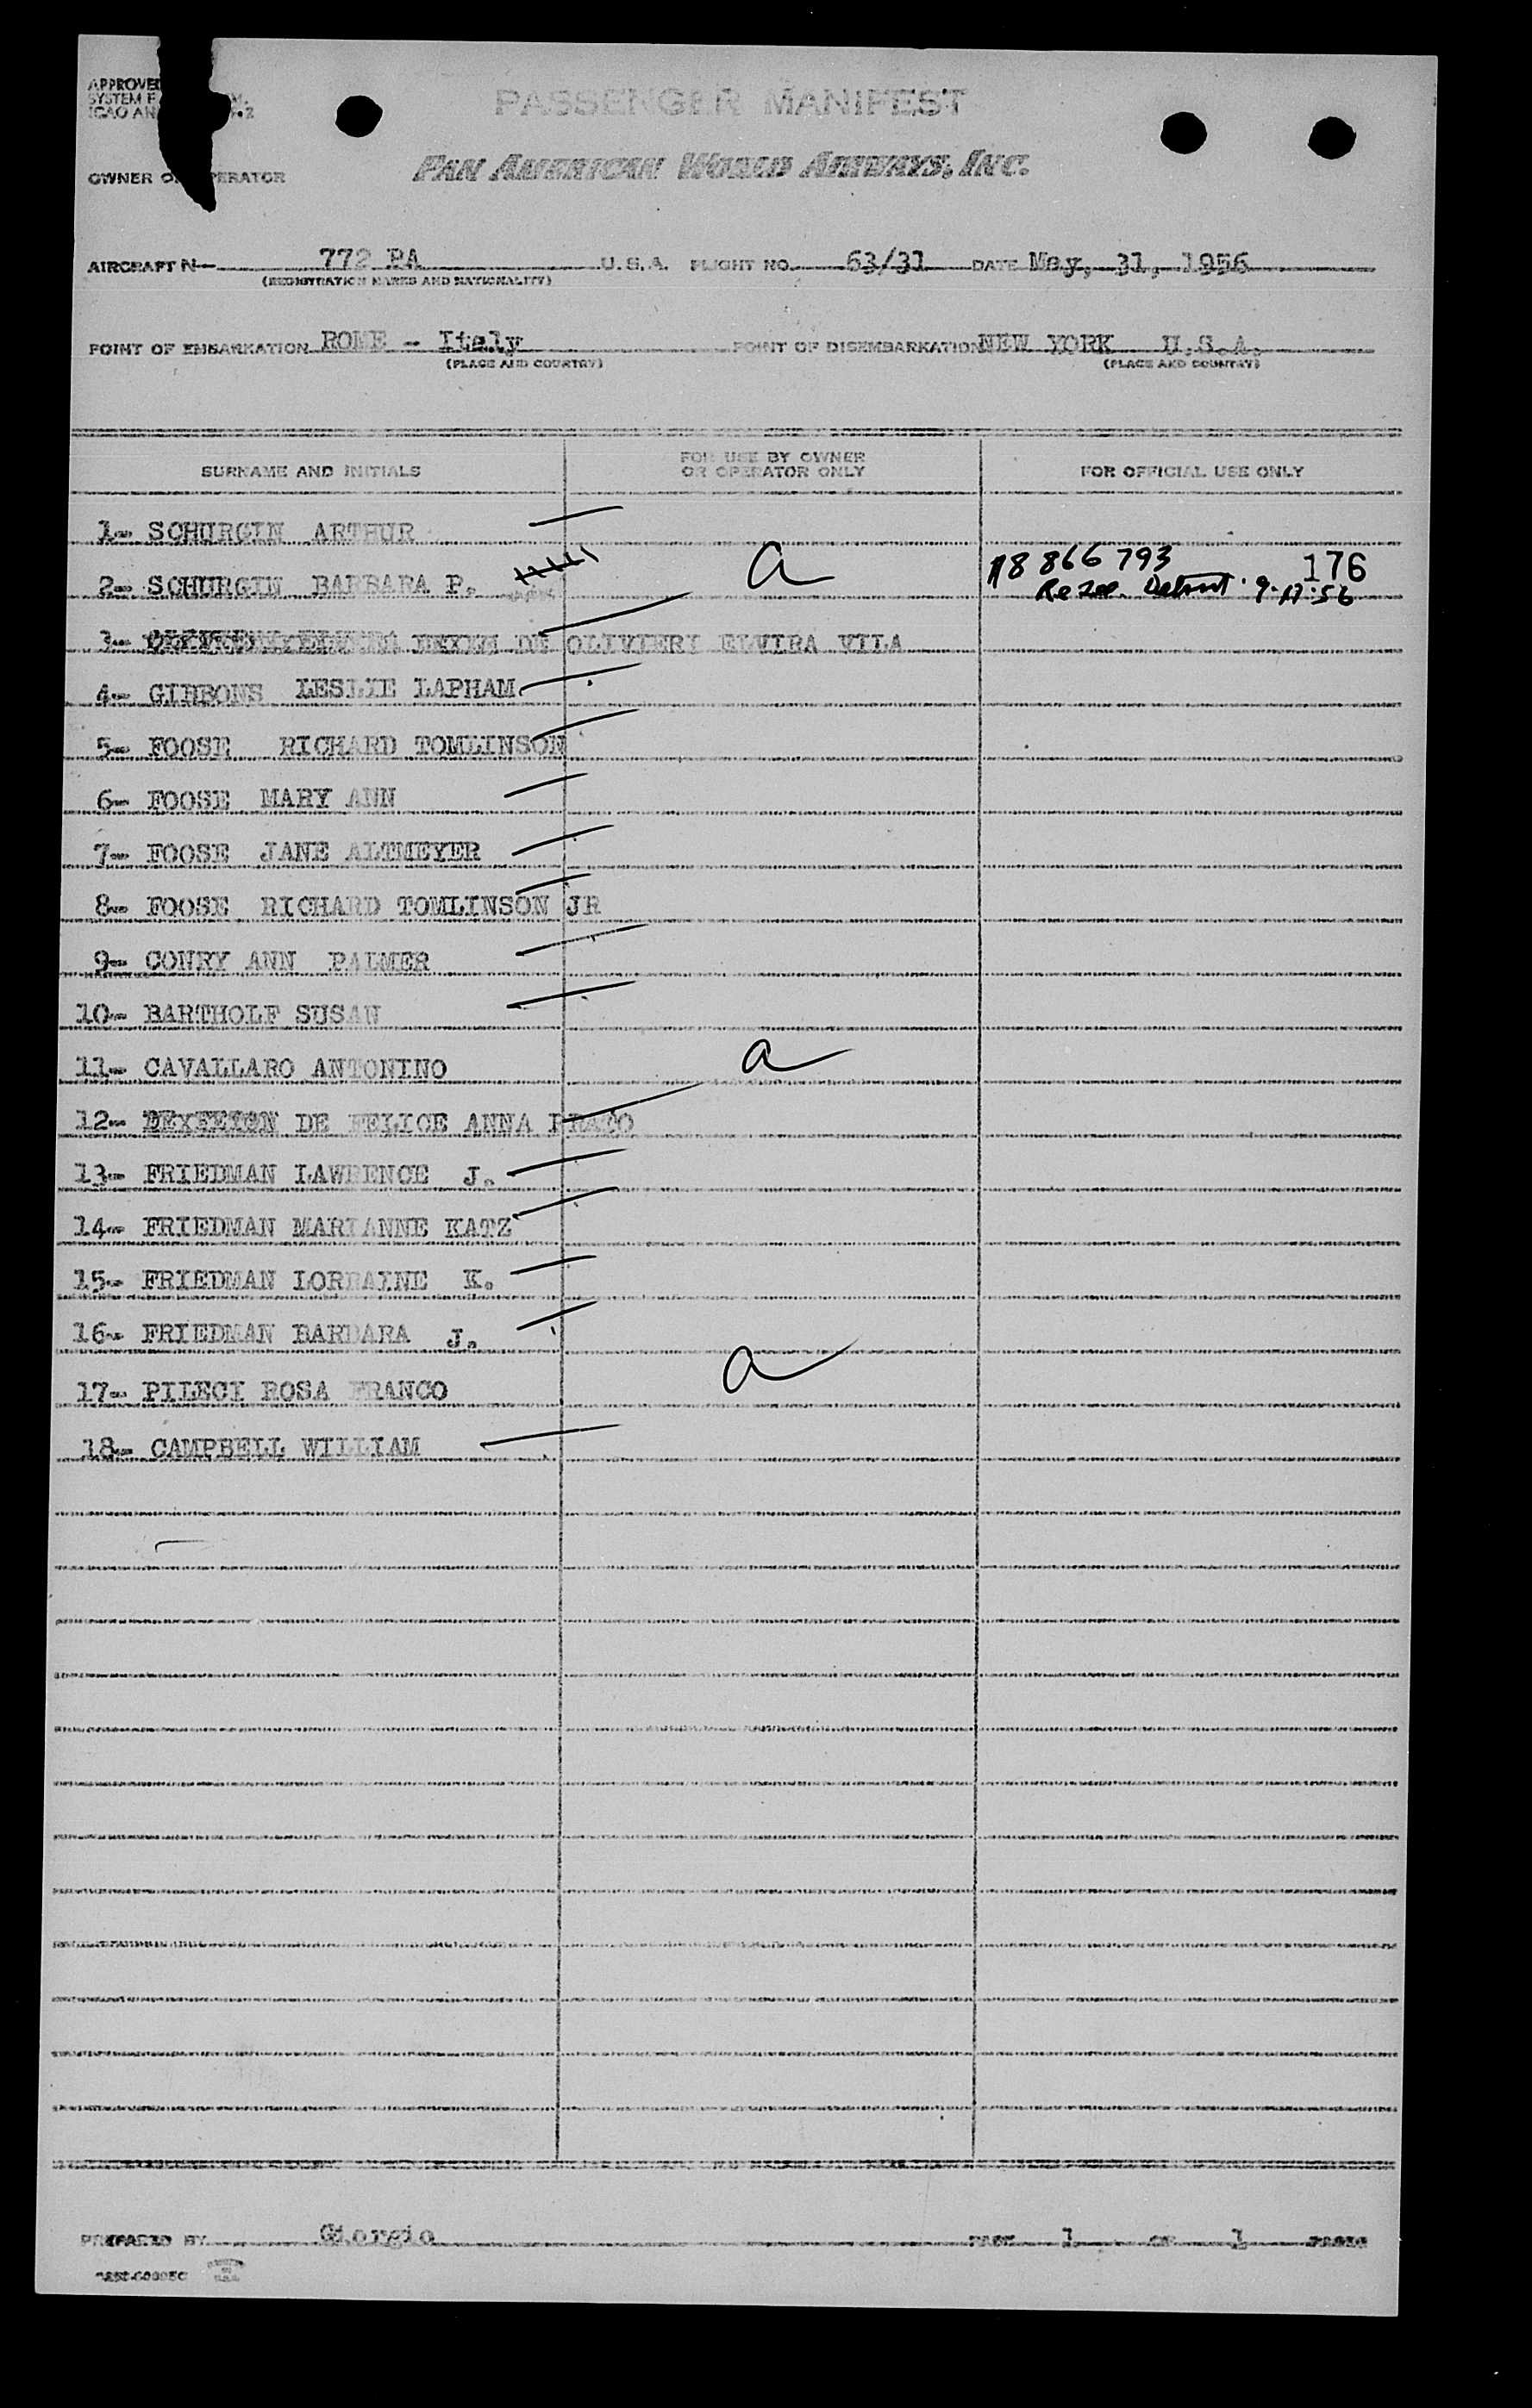 APPROVED
SYSTEM F
ICAO AN .2
PASSENGER MANIFEST
OWNER OR OPERATOR PAN AMERICAN WORLD AIRWAYS, INC.
AIRCRAFT N- 772 PA U.S.A. FLIGHT NO. 63/31 DATE May, 31, 1956
(REGISTRATION MARKS AND NATIONALITY)
POINT OF EMBARKATION ROME - Italy POINT OF DISEMBARKATION NEW YORK U.S.A.
(PLACE AND COUNTRY) (PLACE AND COUNTRY)
SURNAME AND INITIALS FOR USE BY OWNER OR OPERATOR ONLY FOR OFFICIAL USE ONLY
1- SCHURGIN ARTHUR
2- SCHURGIN BARBARA P. a A8 866 793 176
Detroit 9-17-56
3- DE OLIVIERI ELVIRA VILA
4- GIBBONS LESLIE LAPHAM
5- FOOSE RICHARD TOMLINSON
6- FOOSE MARY ANN
7- FOOSE JANE ALTMEYER
8- FOOSE RICHARD TOMLINSON JR
9- CONRY ANN PALMER
10- BARTHOLF SUSAN
11- CAVALLARO ANTONINO a
12- DE FELICE ANNA PRATO
13- FRIEDMAN LAWRENCE J.
14- FRIEDMAN MARIANNE KATZ
15- FRIEDMAN LORRAINE K.
16- FRIEDMAN BARBARA J.
17- PILECI ROSA FRANCO a
18- CAMPBELL WILLIAM
PREPARED BY Giorgio PAGE 1 OF 1 PAGES